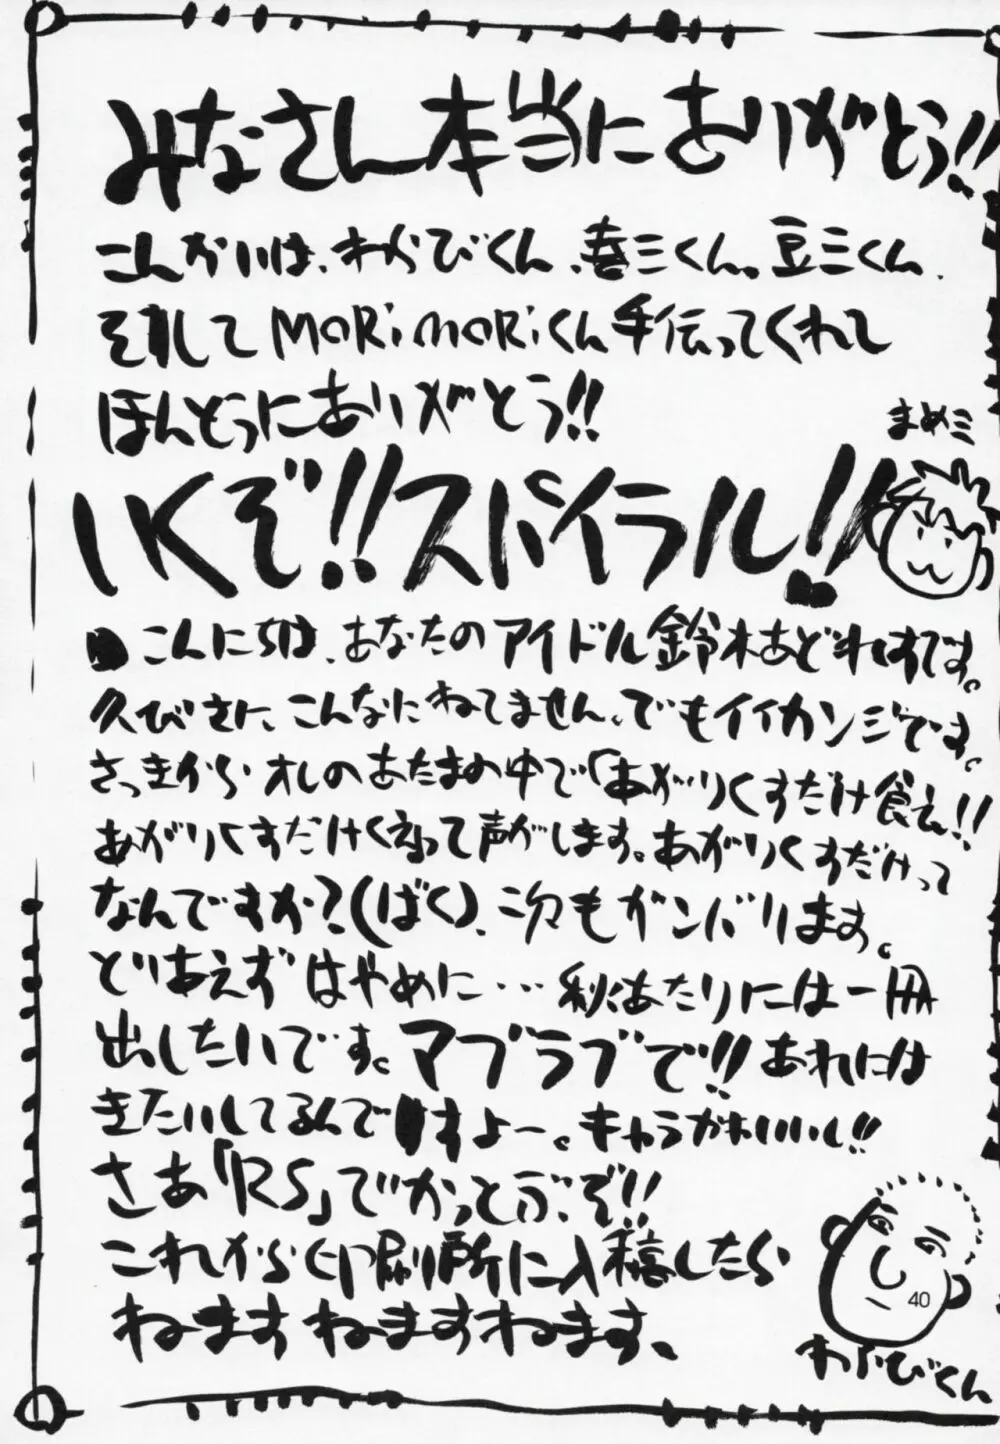 みなさん本当にありがとう!!
こんかいは、わらびくん、喜三くん。豆三くん、
そしてMORiMORiくん手伝ってくれて
ほんとうにありがとう!!
まめミ
いくぞ!!スパイラル!!
●こんにちは、あなたのアイドル鈴木あどれすです。
久びさに、こんなにねてません、でもイイカンジです。
さっきから オレのあたまの中で「あがりくすだけ食え!!
あがりくすだけくえって声がします。あがりくすだけって
なんですか?(ばく)、次もガンバります。
とりあえず はやめに…秋あたりには一冊
出したいです。マブラブで!!あれには
きたいしてるんですよー。キャラかわいいし!!
さあ「RS」でかっとぶぞ!!
これから印刷所に入稿したら
ねます ねますねます、
40
わらびくん